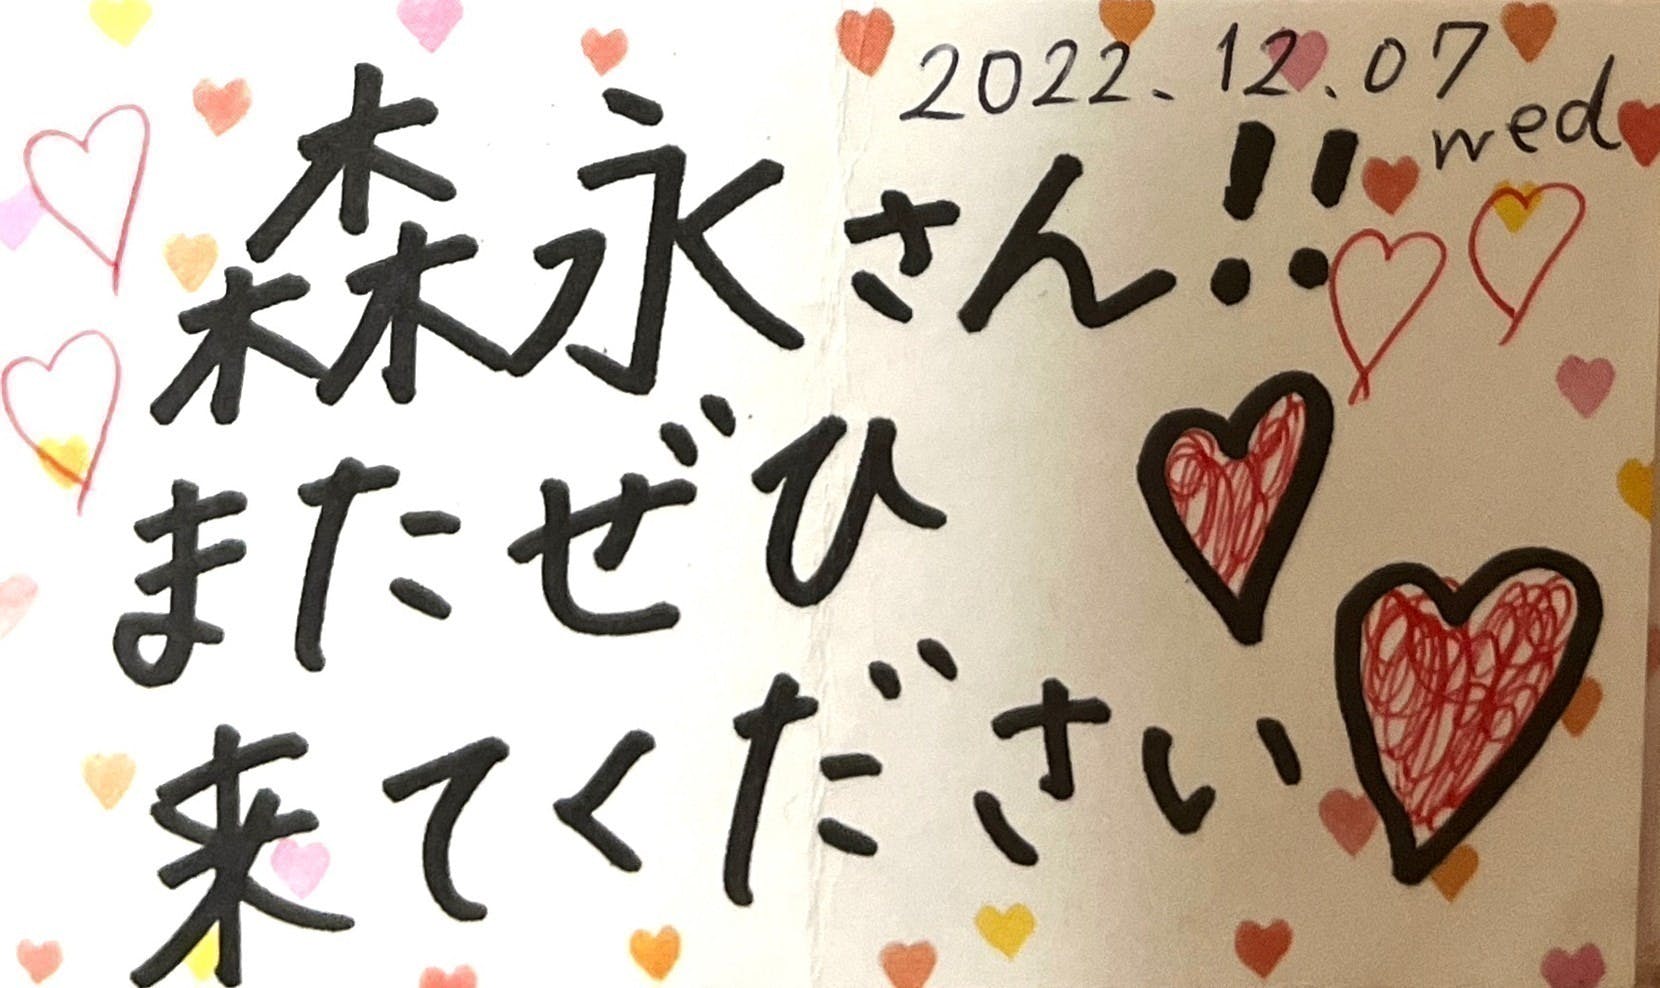 2022.12.07
wed
森永さん!!
またぜひ
来てください